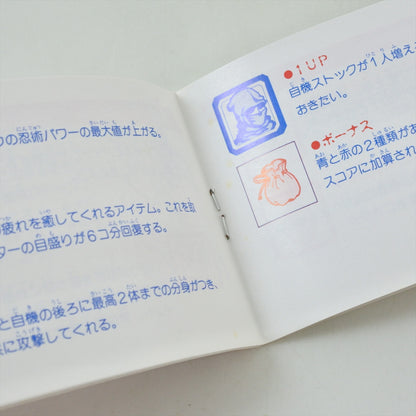 の忍術パワーの最大値が上がる。
疲れを癒してくれるアイテム。これを取
ターの目盛りが6コ分回復する。
と自機の後ろに最高2体までの分身がつき、
に攻撃してくれる。
●1UP
自機ストックが1人増え
おきたい。
●ボーナス
青と赤の2種類が
スコアに加算され